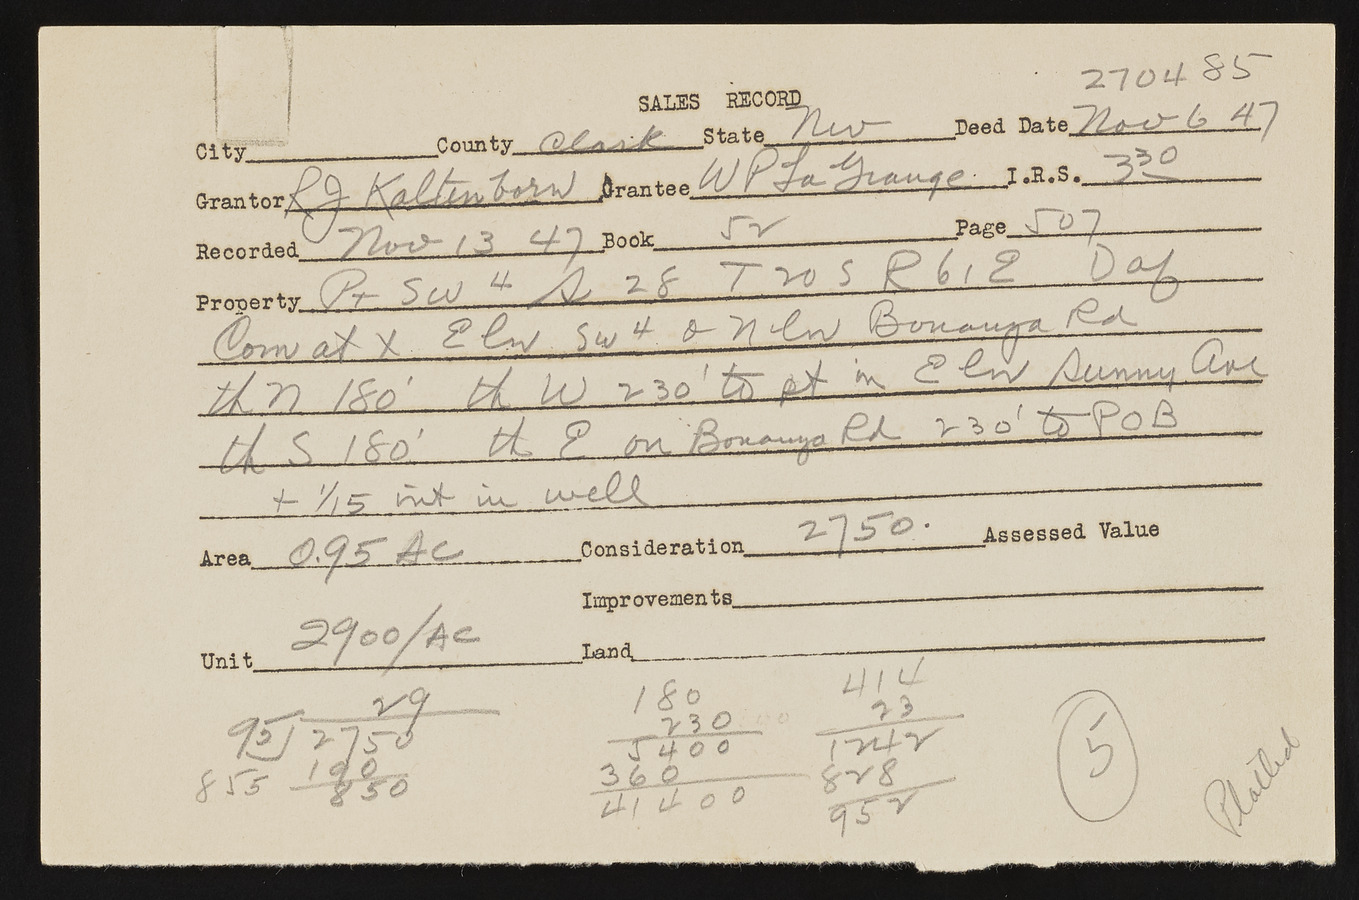 2704 85
SALES RECORD
City County Clark State Nev Deed Date Nov 6 47
Grantor R J Kaltenborn Grantee W P La Grange I.R.S. 3 30
Recorded Nov 13 47 Book 52 Page 507
Property Pt SW 4 S 28 T 20 S R 61 E Daf
Com at X E ln SW 4 & N ln Bonanza Rd
th N 180' th W 230' to pt in E ln Sunny Ave
th S 180' th E on Bonanza Rd 230' to POB
+ 1/15 int in well
Area 0.95 Ac Consideration 2750. Assessed Value
Improvements
Unit 2900/Ac Land
29
95) 2750
855 190
850
180
230
5400
360
41400
414
23
1242
828
952
5
Platted